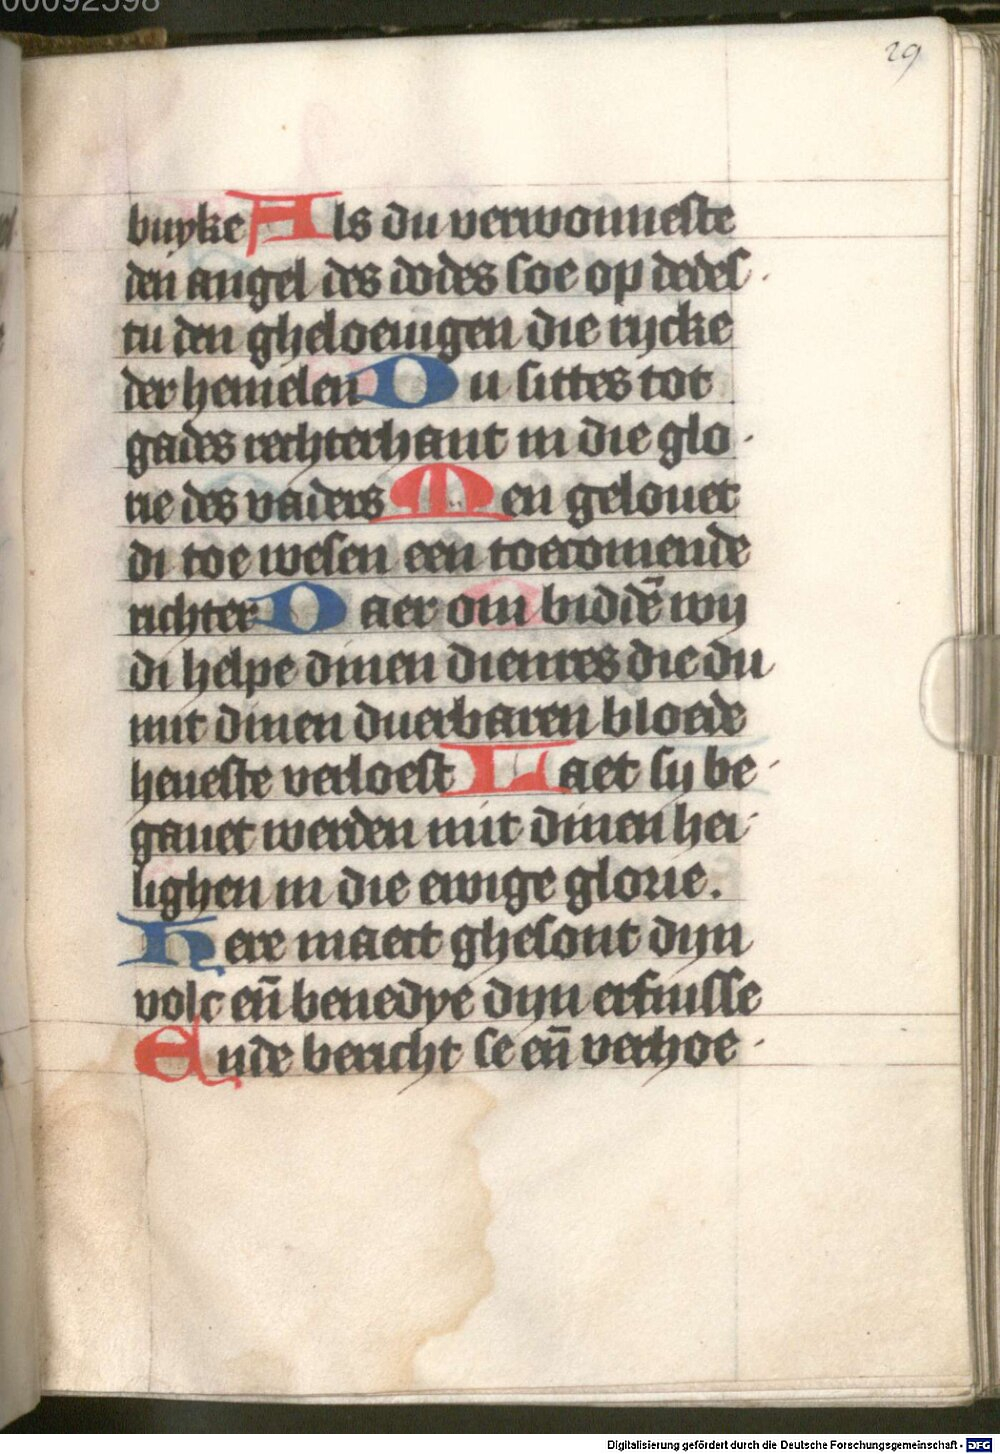 00092598
29
buyke Als du verwonneste
den angel des dodes soe op dedes
tu den gheloeuigen die rijcke
der hemelen Du sittes tot
gades rechterhant in die glo
rie des vaders Men gelouet
di toe wesen een toecomende
richter Daer om biddē wij
di helpe dinen dienres die du
mit dinen duerbaren bloede
heueste verloest Laet sij be
gauet werden mit dinen hei
lighen in die ewige glorie.
Here maect ghesont dijn
volc eñ benedye dijn erfnisse
Ende bericht se eñ verhoe
Digitalisierung gefördert durch die Deutsche Forschungsgemeinschaft - DFG